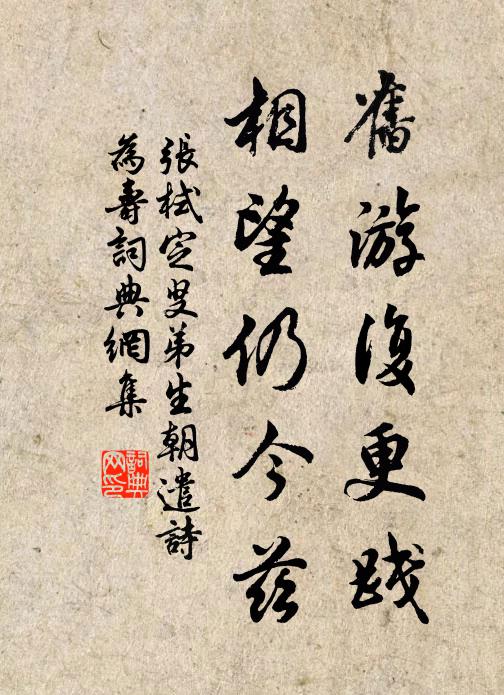 舊游復更踐
相望仍今茲
張栻定叟弟生朝遣詩
為壽詞典網集
詞典
网印